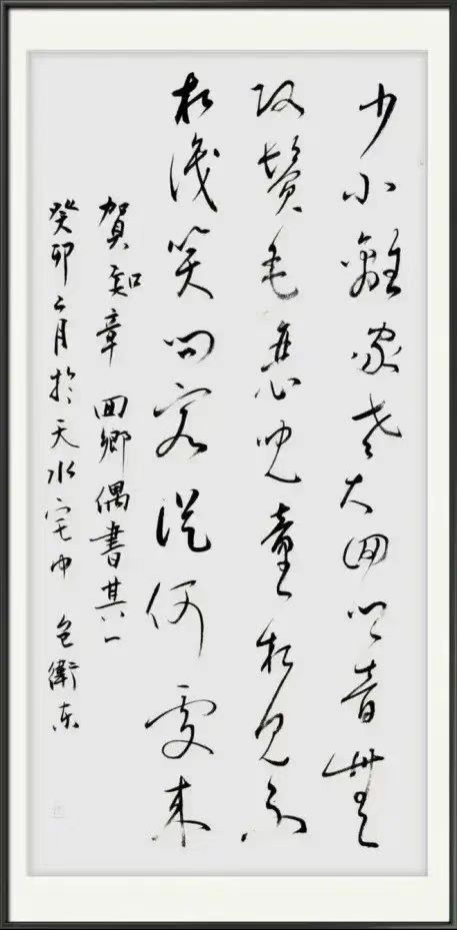 少小離家老大回鄉音無
改鬢毛衰兒童相見不
相識笑問客從何處來
賀知章 回鄉偶書其一
癸卯二月於天水宅中 包衛东